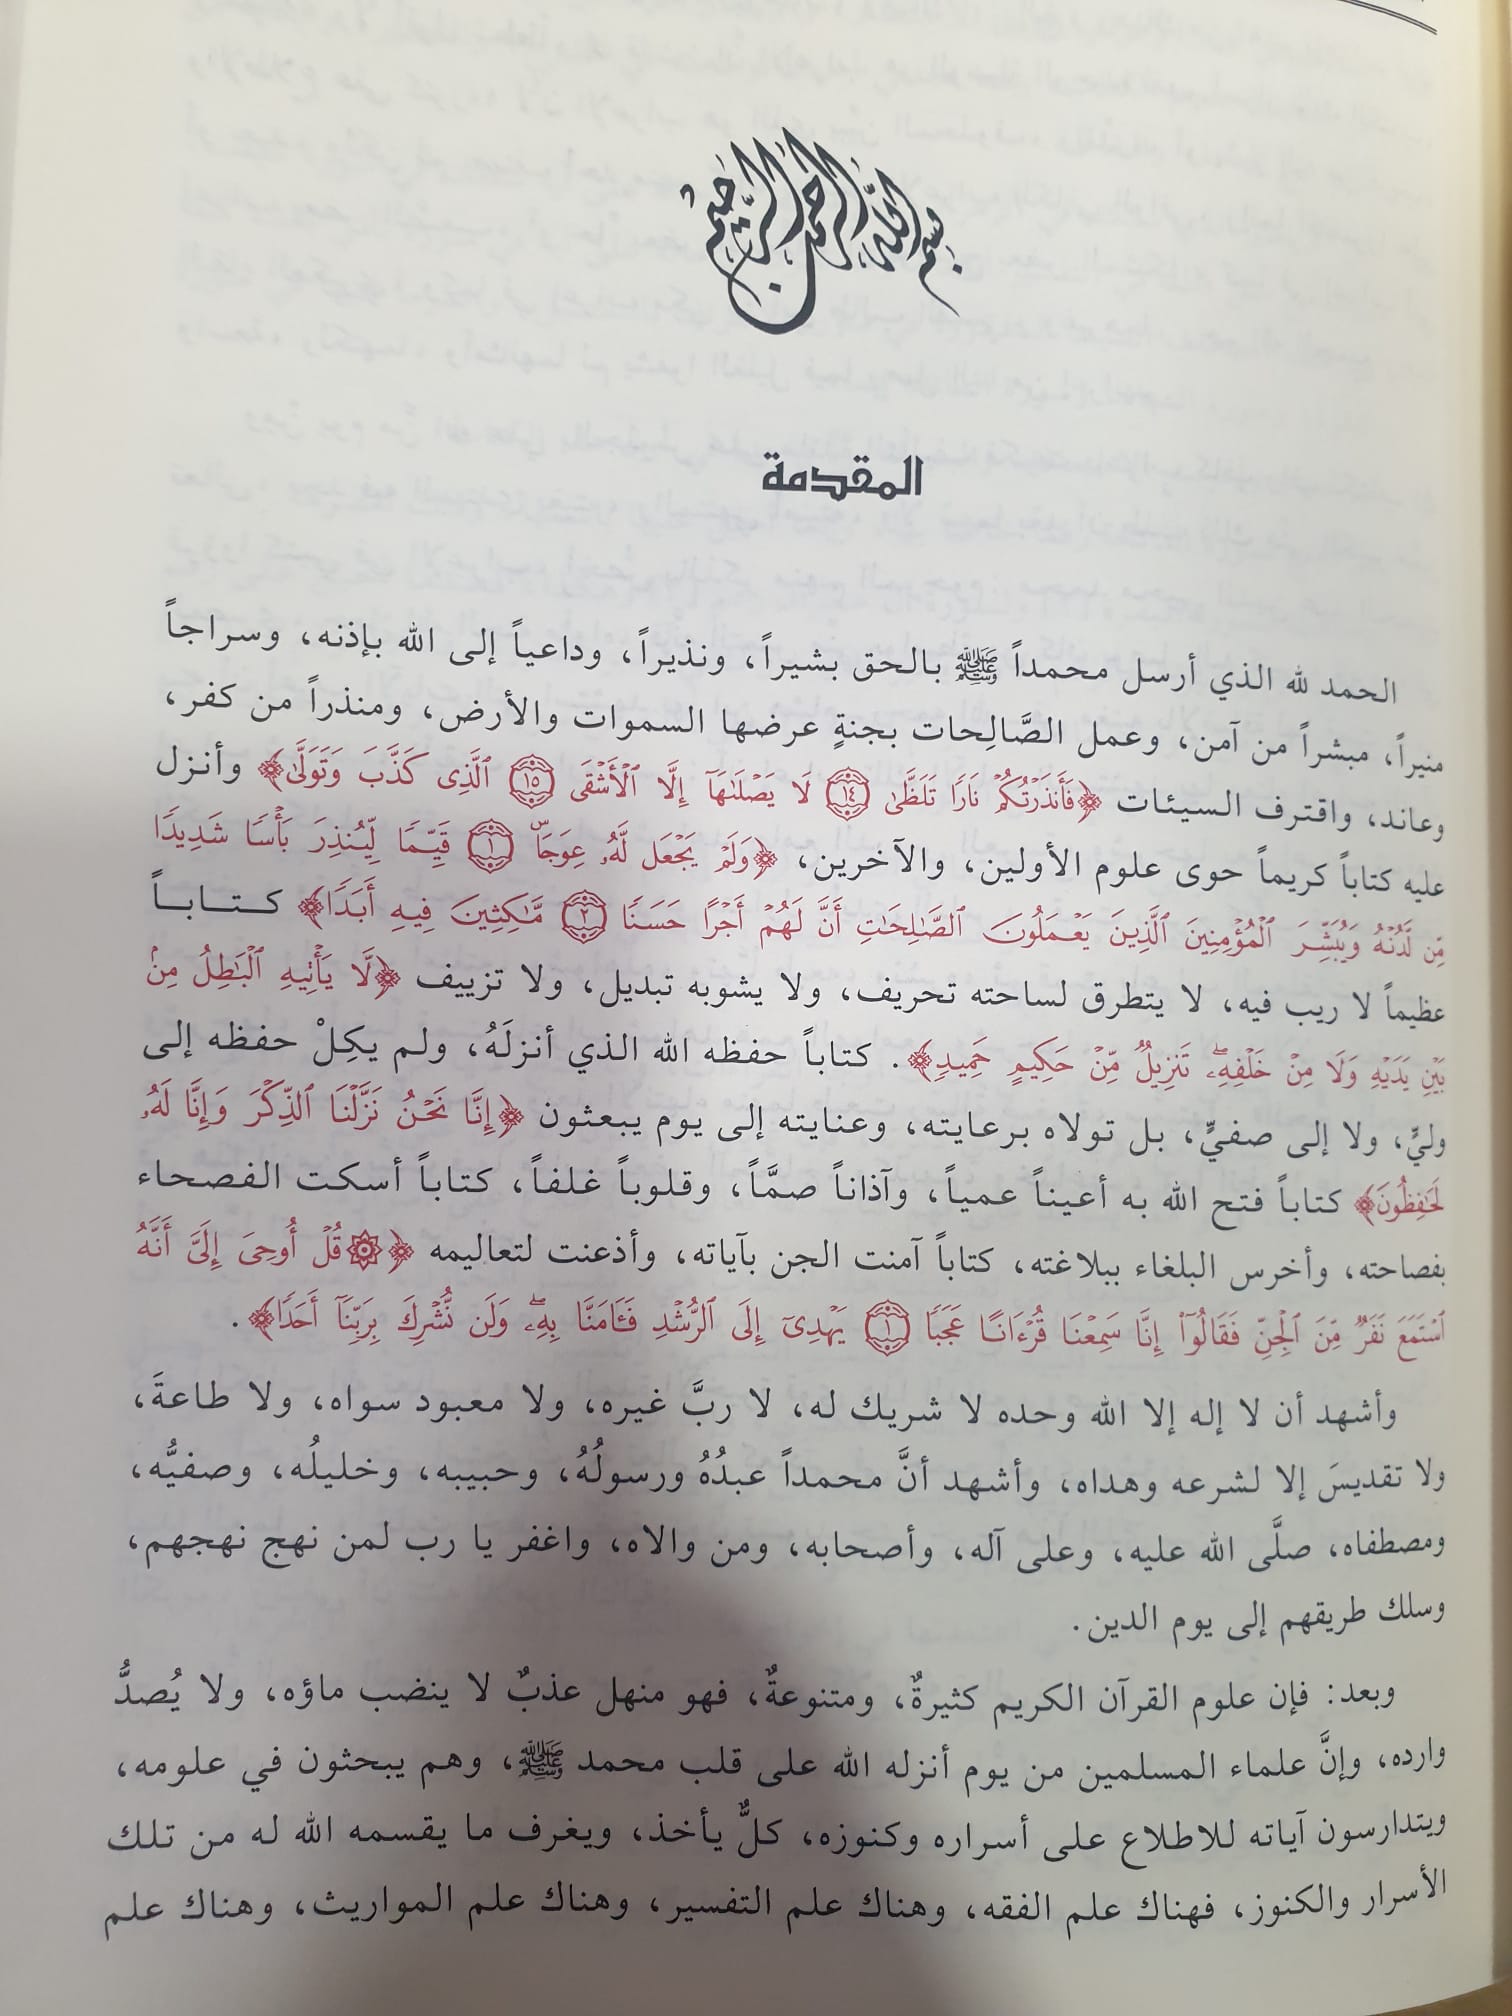 بسم الله الرحمن الرحيم
المقدمة
الحمد لله الذي أرسل محمداً ﷺ بالحق بشيراً، ونذيراً، وداعياً إلى الله بإذنه، وسراجاً
منيراً، مبشراً من آمن، وعمل الصَّالِحات بجنةٍ عرضها السموات والأرض، ومنذراً من كفر،
وعاند، واقترف السيئات ﴿فَأَنذَرْتُكُمْ نَارًا تَلَظَّىٰ ١٤ لَا يَصْلَىٰهَآ إِلَّا ٱلْأَشْقَى ١٥ ٱلَّذِى كَذَّبَ وَتَوَلَّىٰ﴾ وأنزل
عليه كتاباً كريماً حوى علوم الأولين، والآخرين، ﴿وَلَمْ يَجْعَل لَّهُۥ عِوَجَاۜ ١ قَيِّمًا لِّيُنذِرَ بَأْسًا شَدِيدًا
مِّن لَّدُنْهُ وَيُبَشِّرَ ٱلْمُؤْمِنِينَ ٱلَّذِينَ يَعْمَلُونَ ٱلصَّٰلِحَٰتِ أَنَّ لَهُمْ أَجْرًا حَسَنًا ٢ مَّٰكِثِينَ فِيهِ أَبَدًا﴾ كتاباً
عظيماً لا ريب فيه، لا يتطرق لساحته تحريف، ولا يشوبه تبديل، ولا تزييف ﴿لَّا يَأْتِيهِ ٱلْبَٰطِلُ مِنۢ
بَيْنِ يَدَيْهِ وَلَا مِنْ خَلْفِهِۦۖ تَنزِيلٌ مِّنْ حَكِيمٍ حَمِيدٍ﴾. كتاباً حفظه الله الذي أنزلَهُ، ولم يكِلْ حفظه إلى
وليٍّ، ولا إلى صفيٍّ، بل تولاه برعايته، وعنايته إلى يوم يبعثون ﴿إِنَّا نَحْنُ نَزَّلْنَا ٱلذِّكْرَ وَإِنَّا لَهُۥ
لَحَٰفِظُونَ﴾ كتاباً فتح الله به أعيناً عمياً، وآذاناً صمَّاً، وقلوباً غلفاً، كتاباً أسكت الفصحاء
بفصاحته، وأخرس البلغاء ببلاغته، كتاباً آمنت الجن بآياته، وأذعنت لتعاليمه ﴿۞قُلْ أُوحِىَ إِلَىَّ أَنَّهُ
ٱسْتَمَعَ نَفَرٌ مِّنَ ٱلْجِنِّ فَقَالُوٓا۟ إِنَّا سَمِعْنَا قُرْءَانًا عَجَبًا ١ يَهْدِىٓ إِلَى ٱلرُّشْدِ فَـَٔامَنَّا بِهِۦۖ وَلَن نُّشْرِكَ بِرَبِّنَآ أَحَدًا﴾.
وأشهد أن لا إله إلا الله وحده لا شريك له، لا ربَّ غيره، ولا معبود سواه، ولا طاعةَ،
ولا تقديسَ إلا لشرعه وهداه، وأشهد أنَّ محمداً عبدُهُ ورسولُهُ، وحبيبه، وخليلُه، وصفيُّه،
ومصطفاه، صلَّى الله عليه، وعلى آله، وأصحابه، ومن والاه، واغفر يا رب لمن نهج نهجهم،
وسلك طريقهم إلى يوم الدين.
وبعد: فإن علوم القرآن الكريم كثيرةٌ، ومتنوعةٌ، فهو منهل عذبٌ لا ينضب ماؤه، ولا يُصدُّ
وارده، وإنَّ علماء المسلمين من يوم أنزله الله على قلب محمد ﷺ، وهم يبحثون في علومه،
ويتدارسون آياته للاطلاع على أسراره وكنوزه، كلٌّ يأخذ، ويغرف ما يقسمه الله له من تلك
الأسرار والكنوز، فهناك علم الفقه، وهناك علم التفسير، وهناك علم المواريث، وهناك علم